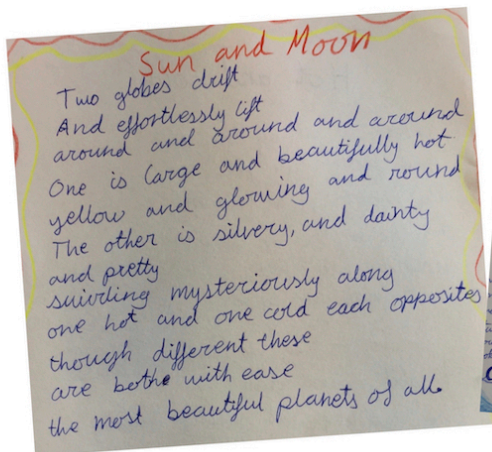 Sun and Moon
Two globes drift
And effortlessly lift
around and around and around
One is large and beautifully hot
yellow and glowing and round
The other is silvery, and dainty
and pretty
swirling mysteriously along
one hot and one cold each opposites
though different these
are bothe with ease
the most beautiful planets of all.